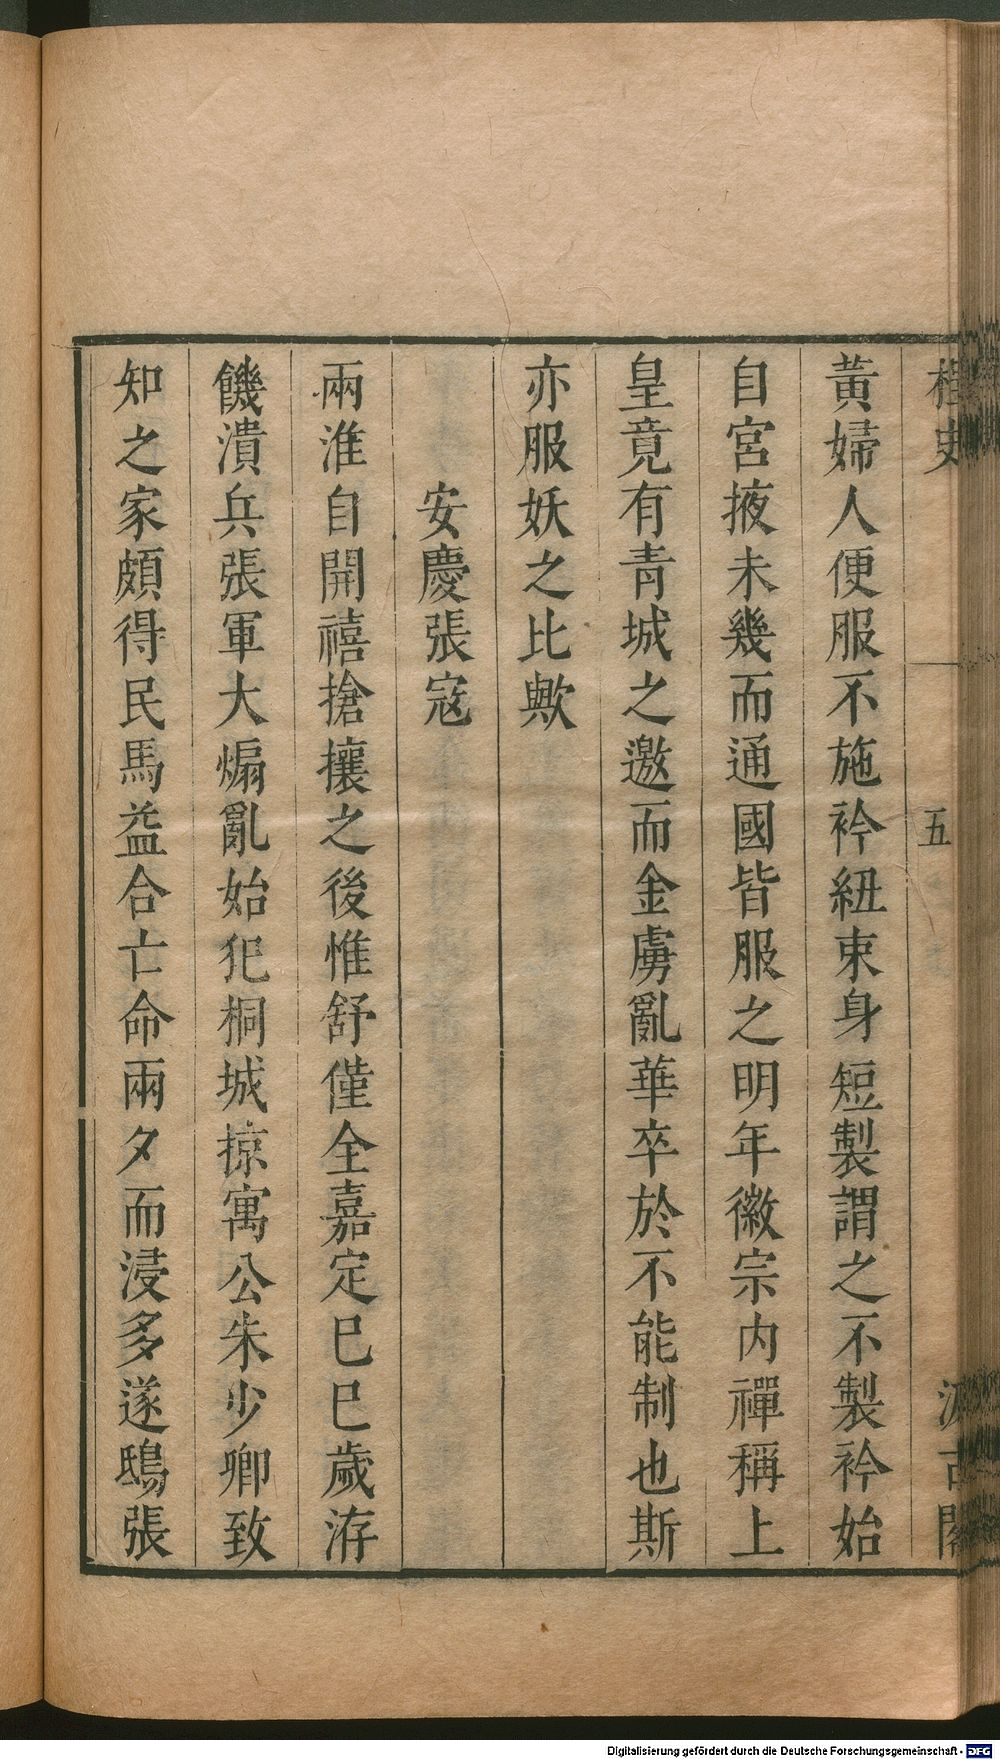 桯史 五 汲古閣
黃婦人便服不施衿紐束身短製謂之不製衿始
自宮掖未幾而通國皆服之明年徽宗內禪稱上
皇竟有青城之邀而金虜亂華卒於不能制也斯
亦服妖之比歟
安慶張寇
兩淮自開禧搶攘之後惟舒僅全嘉定巳巳歲洊
饑潰兵張軍大煽亂始犯桐城掠寓公朱少卿致
知之家頗得民馬益合亡命兩夕而浸多遂鴟張
Digitalisierung gefördert durch die Deutsche Forschungsgemeinschaft - DFG